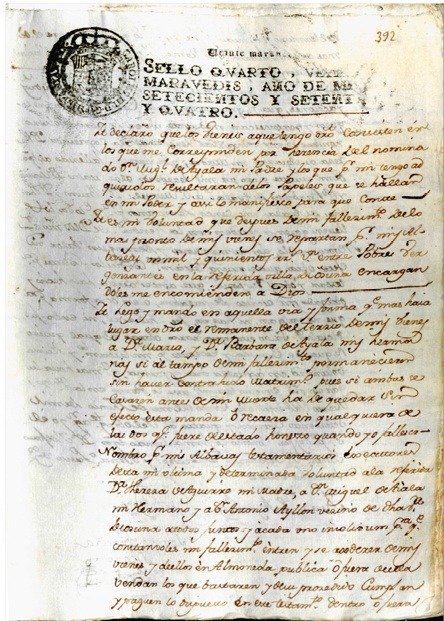 392
Veinte marav
SELLO QVARTO, VEIN
MARAVEDIS, AÑO DE MI
SETECIENTOS Y SETENTA
Y QVATRO.
declaro que los vienes a que tengo dro Consisten en
los que me Corresponden por herencia del nomina
do Dn Migl de Ayala mi Padre y los que pr mi tengo ad
quiridos resultaran de los Papeles que se hallaran
en mi Poder y asi lo manifiesto para que Conste
es mi Voluntad que despues de mi fallecimto de lo
mas pronto de mis vienes se repartan pr mis Al
baceas un mil y quinientos rs vn entre Pobres Ver
gonzantes en la referida villa de encargan
doles me encomienden a Dios
lego y mando en aquella via y forma qe mas haia
lugar en dro el remanente del tercio de mis bienes
a Da Maria, y Da Barbara de Ayala mis herma
nas si al tiempo de mi fallecimto permanecieren
sin haver Contrahido Matrimo pues si ambas se
Casaren antes de mi muerte ha de quedar sin
efecto esta manda o recaera en qualquiera de
las dos qe fuere de estado honesto quando yo fallezca
Nombro pr mis Albaceas testamentarios executores
de esta mi ultima y determinada voluntad a la referida
Da Theresa de Aguirre mi Madre, a Dn Miguel de Ayala
mi Hermano y a Dn Antonio Ayllon vecino de
a todos juntos y a cada uno insolidum pa qe
constandoles mi fallecimto entren y se apoderen de mis
vienes y de ellos en Almoneda publica o fuera de ella
vendan los que bastaren y de su procedido Cumplan
y paguen lo dispuesto en este testamto dentro o fuera